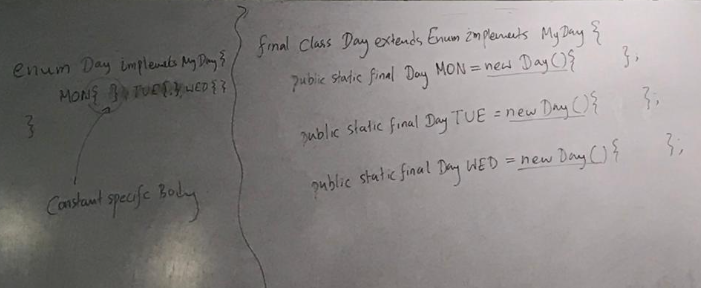 enum Day implements MyDay {
MON{ }, TUE{ }, WED{ }
}
Constant specific Body
final class Day extends Enum implements MyDay {
public static final Day MON = new Day(){ };
public static final Day TUE = new Day(){ };
public static final Day WED = new Day(){ };